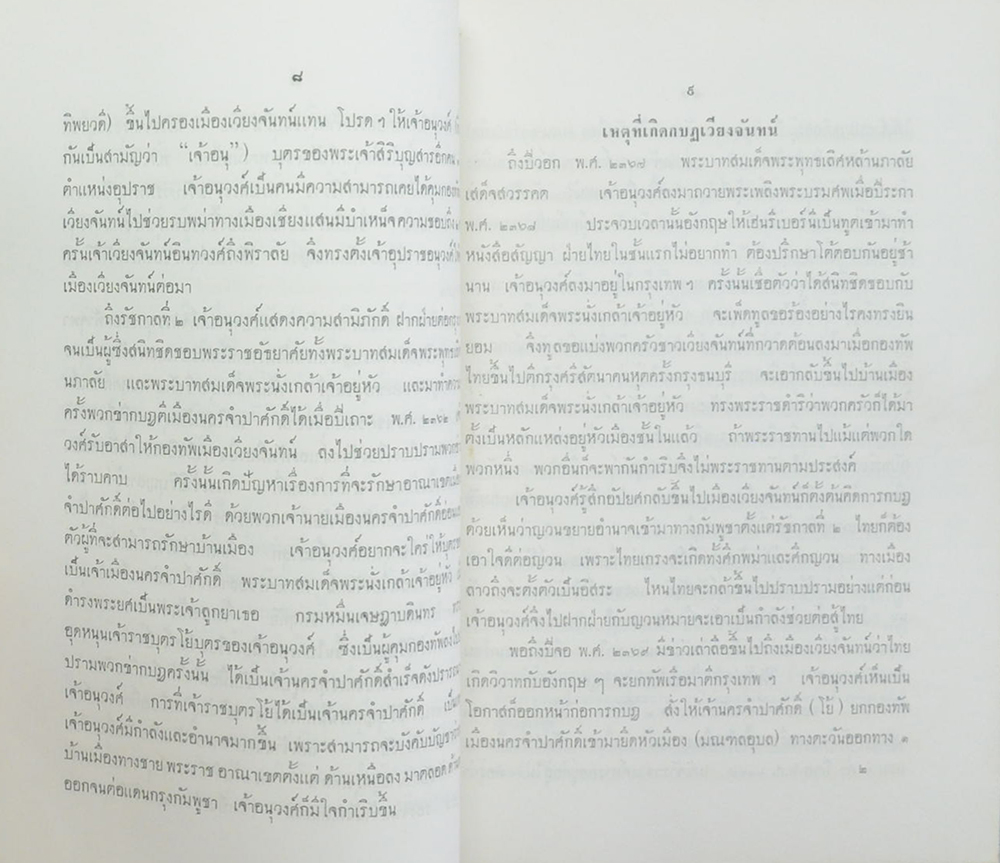 ๘
ทิพยวดี) ขึ้นไปครองเมืองเวียงจันทน์แทน โปรด ฯ ให้เจ้าอนุวงศ์
กันเป็นสามัญว่า “เจ้าอนุ”) บุตรของพระเจ้าสิริบุญสารอีกคน
ตำแหน่งอุปราช เจ้าอนุวงศ์เป็นคนมีความสามารถเคยได้คุมกอง
เวียงจันทน์ไปช่วยรบพม่าทางเมืองเชียงแสนมีบำเหน็จความชอบถึง
ครั้นเจ้าเวียงจันทน์อินทวงศ์ถึงพิราลัย จึงทรงตั้งเจ้าอุปราชอนุวงศ์ให้
เมืองเวียงจันทน์ต่อมา
ถึงรัชกาลที่ ๒ เจ้าอนุวงศ์แสดงความสามิภักดิ์ ฝากฝ่ายต่อ
จนเป็นผู้ซึ่งสนิทชิดชอบพระราชอัธยาศัยทั้งพระบาทสมเด็จพระพุทธ
นภาลัย และพระบาทสมเด็จพระนั่งเกล้าเจ้าอยู่หัว และมาทำ
ครั้งพวกข่ากบฏตีเมืองนครจำปาศักดิ์ได้เมื่อปีเถาะ พ.ศ. ๒๓๖๒
วงศ์รับอาสาให้กองทัพเมืองเวียงจันทน์ ลงไปช่วยปราบปรามพวก
ได้ราบคาบ ครั้งนั้นเกิดปัญหาเรื่องการที่จะรักษาอาณาเขต
จำปาศักดิ์ต่อไปอย่างไรดี ด้วยพวกเจ้านายเมืองนครจำปาศักดิ์อ่อน
ตัวผู้ที่จะสามารถรักษาบ้านเมือง เจ้าอนุวงศ์อยากจะใคร่ให้บุตร
เป็นเจ้าเมืองนครจำปาศักดิ์ พระบาทสมเด็จพระนั่งเกล้าเจ้าอยู่หัว
ดำรงพระยศเป็นพระเจ้าลูกยาเธอ กรมหมื่นเจษฎาบดินทร
อุดหนุนเจ้าราชบุตรโย้บุตรของเจ้าอนุวงศ์ ซึ่งเป็นผู้คุมกองทัพลง
ปรามพวกข่ากบฏครั้งนั้น ได้เป็นเจ้านครจำปาศักดิ์สำเร็จดังปรารถ
เจ้าอนุวงศ์ การที่เจ้าราชบุตรโย้ได้เป็นเจ้านครจำปาศักดิ์
เจ้าอนุวงศ์มีกำลังและอำนาจมากขึ้น เพราะสามารถจะบังคับบัญชา
บ้านเมืองทางชายพระราชอาณาเขตตั้งแต่ด้านเหนือลงมาตลอดด้าน
ออกจนต่อแดนกรุงกัมพูชา เจ้าอนุวงศ์ก็มีใจกำเริบขึ้น
๙
เหตุที่เกิดกบฏเวียงจันทน์
ถึงปีวอก พ.ศ. ๒๓๖๗ พระบาทสมเด็จพระพุทธเลิศหล้านภาลัย
เสด็จสวรรคต เจ้าอนุวงศ์ลงมาถวายพระเพลิงพระบรมศพเมื่อปีระกา
พ.ศ. ๒๓๖๘ ประจวบเวลานั้นอังกฤษให้เฮนรีเบอร์นีเป็นทูตเข้ามาทำ
หนังสือสัญญา ฝ่ายไทยในชั้นแรกไม่อยากทำ ต้องปรึกษาโต้ตอบกันอยู่ช้า
นาน เจ้าอนุวงศ์ลงมาอยู่ในกรุงเทพ ฯ ครั้งนั้นเชื่อตัวว่าได้สนิทชิดชอบกับ
พระบาทสมเด็จพระนั่งเกล้าเจ้าอยู่หัว จะเพ็ดทูลขอร้องอย่างไรคงทรงยิน
ยอม จึงทูลขอแบ่งพวกครัวชาวเวียงจันทน์ที่กวาดต้อนลงมาเมื่อกองทัพ
ไทยขึ้นไปตีกรุงศรีสัตนาคนหุตครั้งกรุงธนบุรี จะเอากลับขึ้นไปบ้านเมือง
พระบาทสมเด็จพระนั่งเกล้าเจ้าอยู่หัว ทรงพระราชดำริว่าพวกครัวก็ได้มา
ตั้งเป็นหลักแหล่งอยู่หัวเมืองชั้นในแล้ว ถ้าพระราชทานไปแม้แต่พวกใด
พวกหนึ่ง พวกอื่นก็จะพากันกำเริบจึงไม่พระราชทานตามประสงค์
เจ้าอนุวงศ์รู้สึกอัปยศกลับขึ้นไปเมืองเวียงจันทน์ก็ตั้งต้นคิดการกบฏ
ด้วยเห็นว่าญวนขยายอำนาจเข้ามาทางกัมพูชาตั้งแต่รัชกาลที่ ๒ ไทยก็ต้อง
เอาใจดีต่อญวน เพราะไทยเกรงจะเกิดทั้งศึกพม่าและศึกญวน ทางเมือง
ลาวถึงจะตั้งตัวเป็นอิสระ ไหนไทยจะกล้าขึ้นไปปราบปรามอย่างแต่ก่อน
เจ้าอนุวงศ์จึงไปฝากฝ่ายกับญวนหมายจะเอาเป็นกำลังช่วยต่อสู้ไทย
พอถึงปีจอ พ.ศ. ๒๓๖๙ มีข่าวเล่าลือขึ้นไปถึงเมืองเวียงจันทน์ว่าไทย
เกิดวิวาทกับอังกฤษ ๆ จะยกทัพเรือมาตีกรุงเทพ ฯ เจ้าอนุวงศ์เห็นเป็น
โอกาสก็ออกหน้าก่อการกบฏ สั่งให้เจ้านครจำปาศักดิ์ (โย้) ยกกองทัพ
เมืองนครจำปาศักดิ์เข้ามายึดหัวเมือง (มณฑลอุบล) ทางตะวันออกทาง ๑
๒